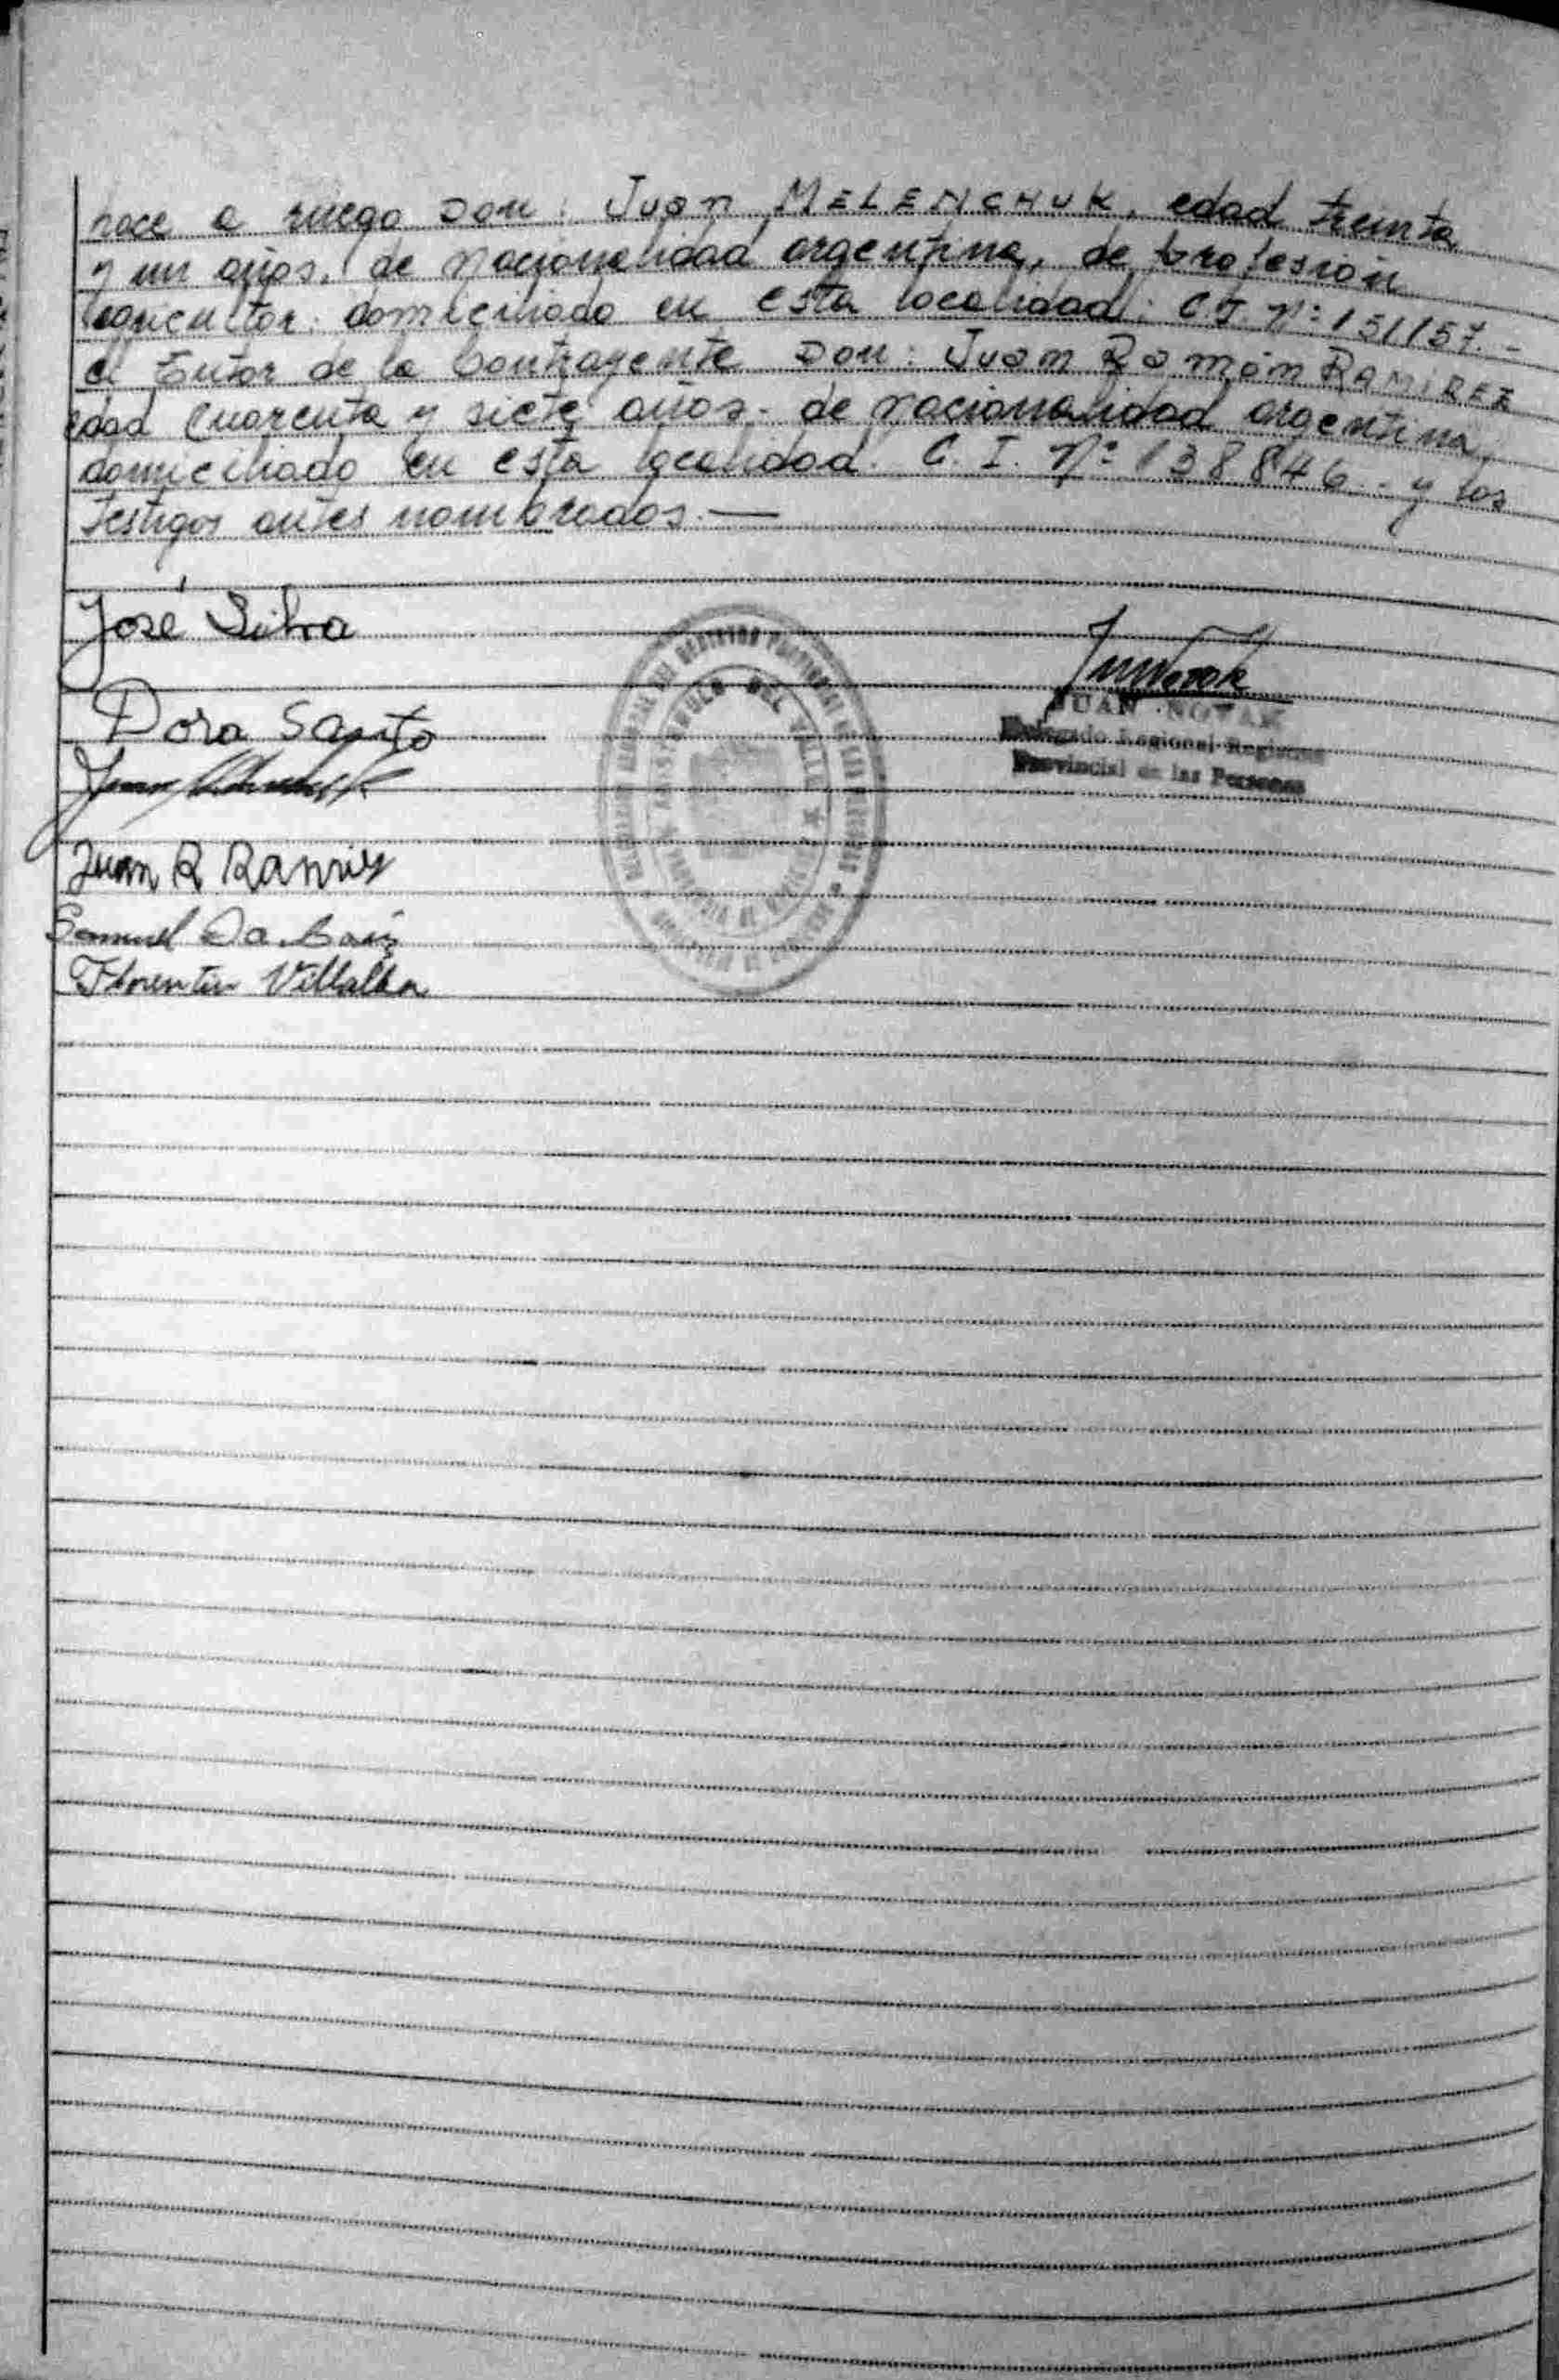 hace a ruego Don: Juan MELENCHUK, edad treinta
y un años, de nacionalidad argentina, de profesión
agricultor: domiciliado en esta localidad: C.I. Nº 151157.-
el Tutor de la Contrayente Don: Juan Ramón RAMIREZ
edad cuarenta y siete años. de nacionalidad argentina,
domiciliado en esta localidad. C. I. Nº 138846.- y los
testigos antes nombrados.—
José Silva
Dora Santo
Juan R Ramirez
Samuel Da
Florentin Villalba
ARISTOBULO DEL VALLE
JUAN NOVAK
Delegado Regional Registro
Provincial de las Personas